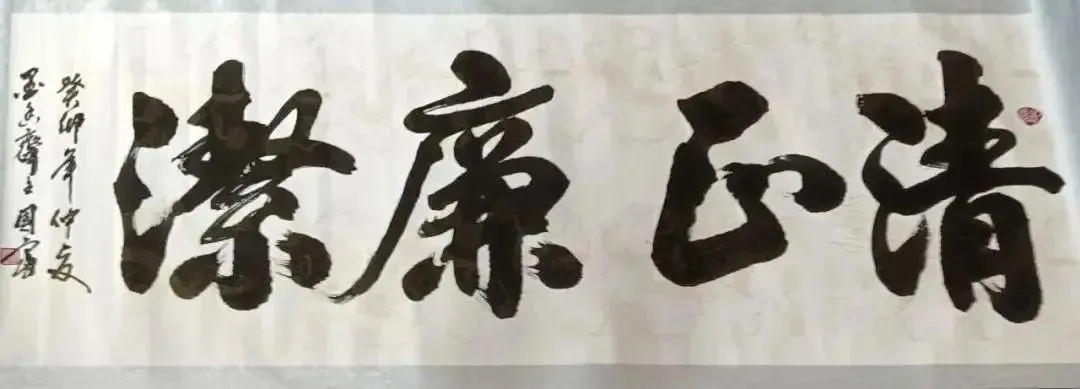 清正廉潔
癸卯年仲夏
墨香齋主國富